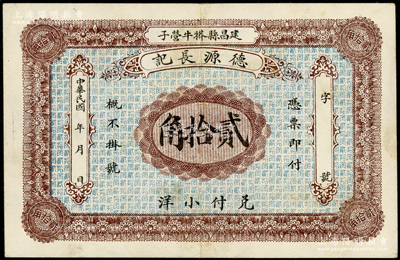 子營牛桥縣昌建
記長源德
字 號
憑票即付
角拾貳
概不掛號
中華民國 年 月 日
洋小付兌